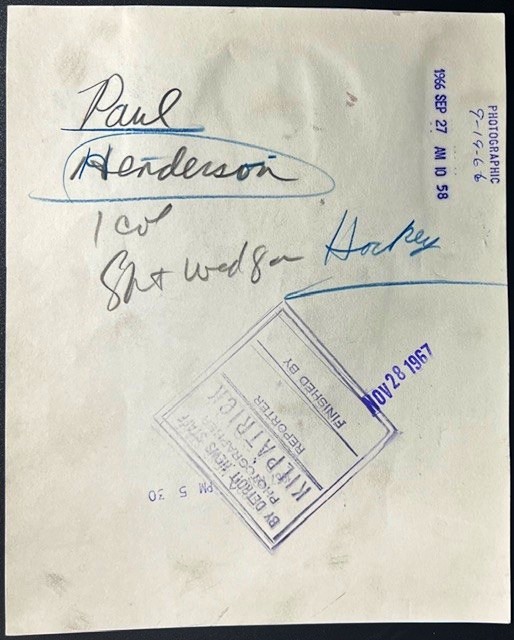 Paul
Henderson
1 col
Spt wed 8am
Hockey
1966 SEP 27 AM 10 58
PHOTOGRAPHIC
9-15-66
NOV 28 1967
BY DETROIT NEWS STAFF
PHOTOGRAPHER
KILPATRICK
REPORTER
FINISHED BY
PM 5 30